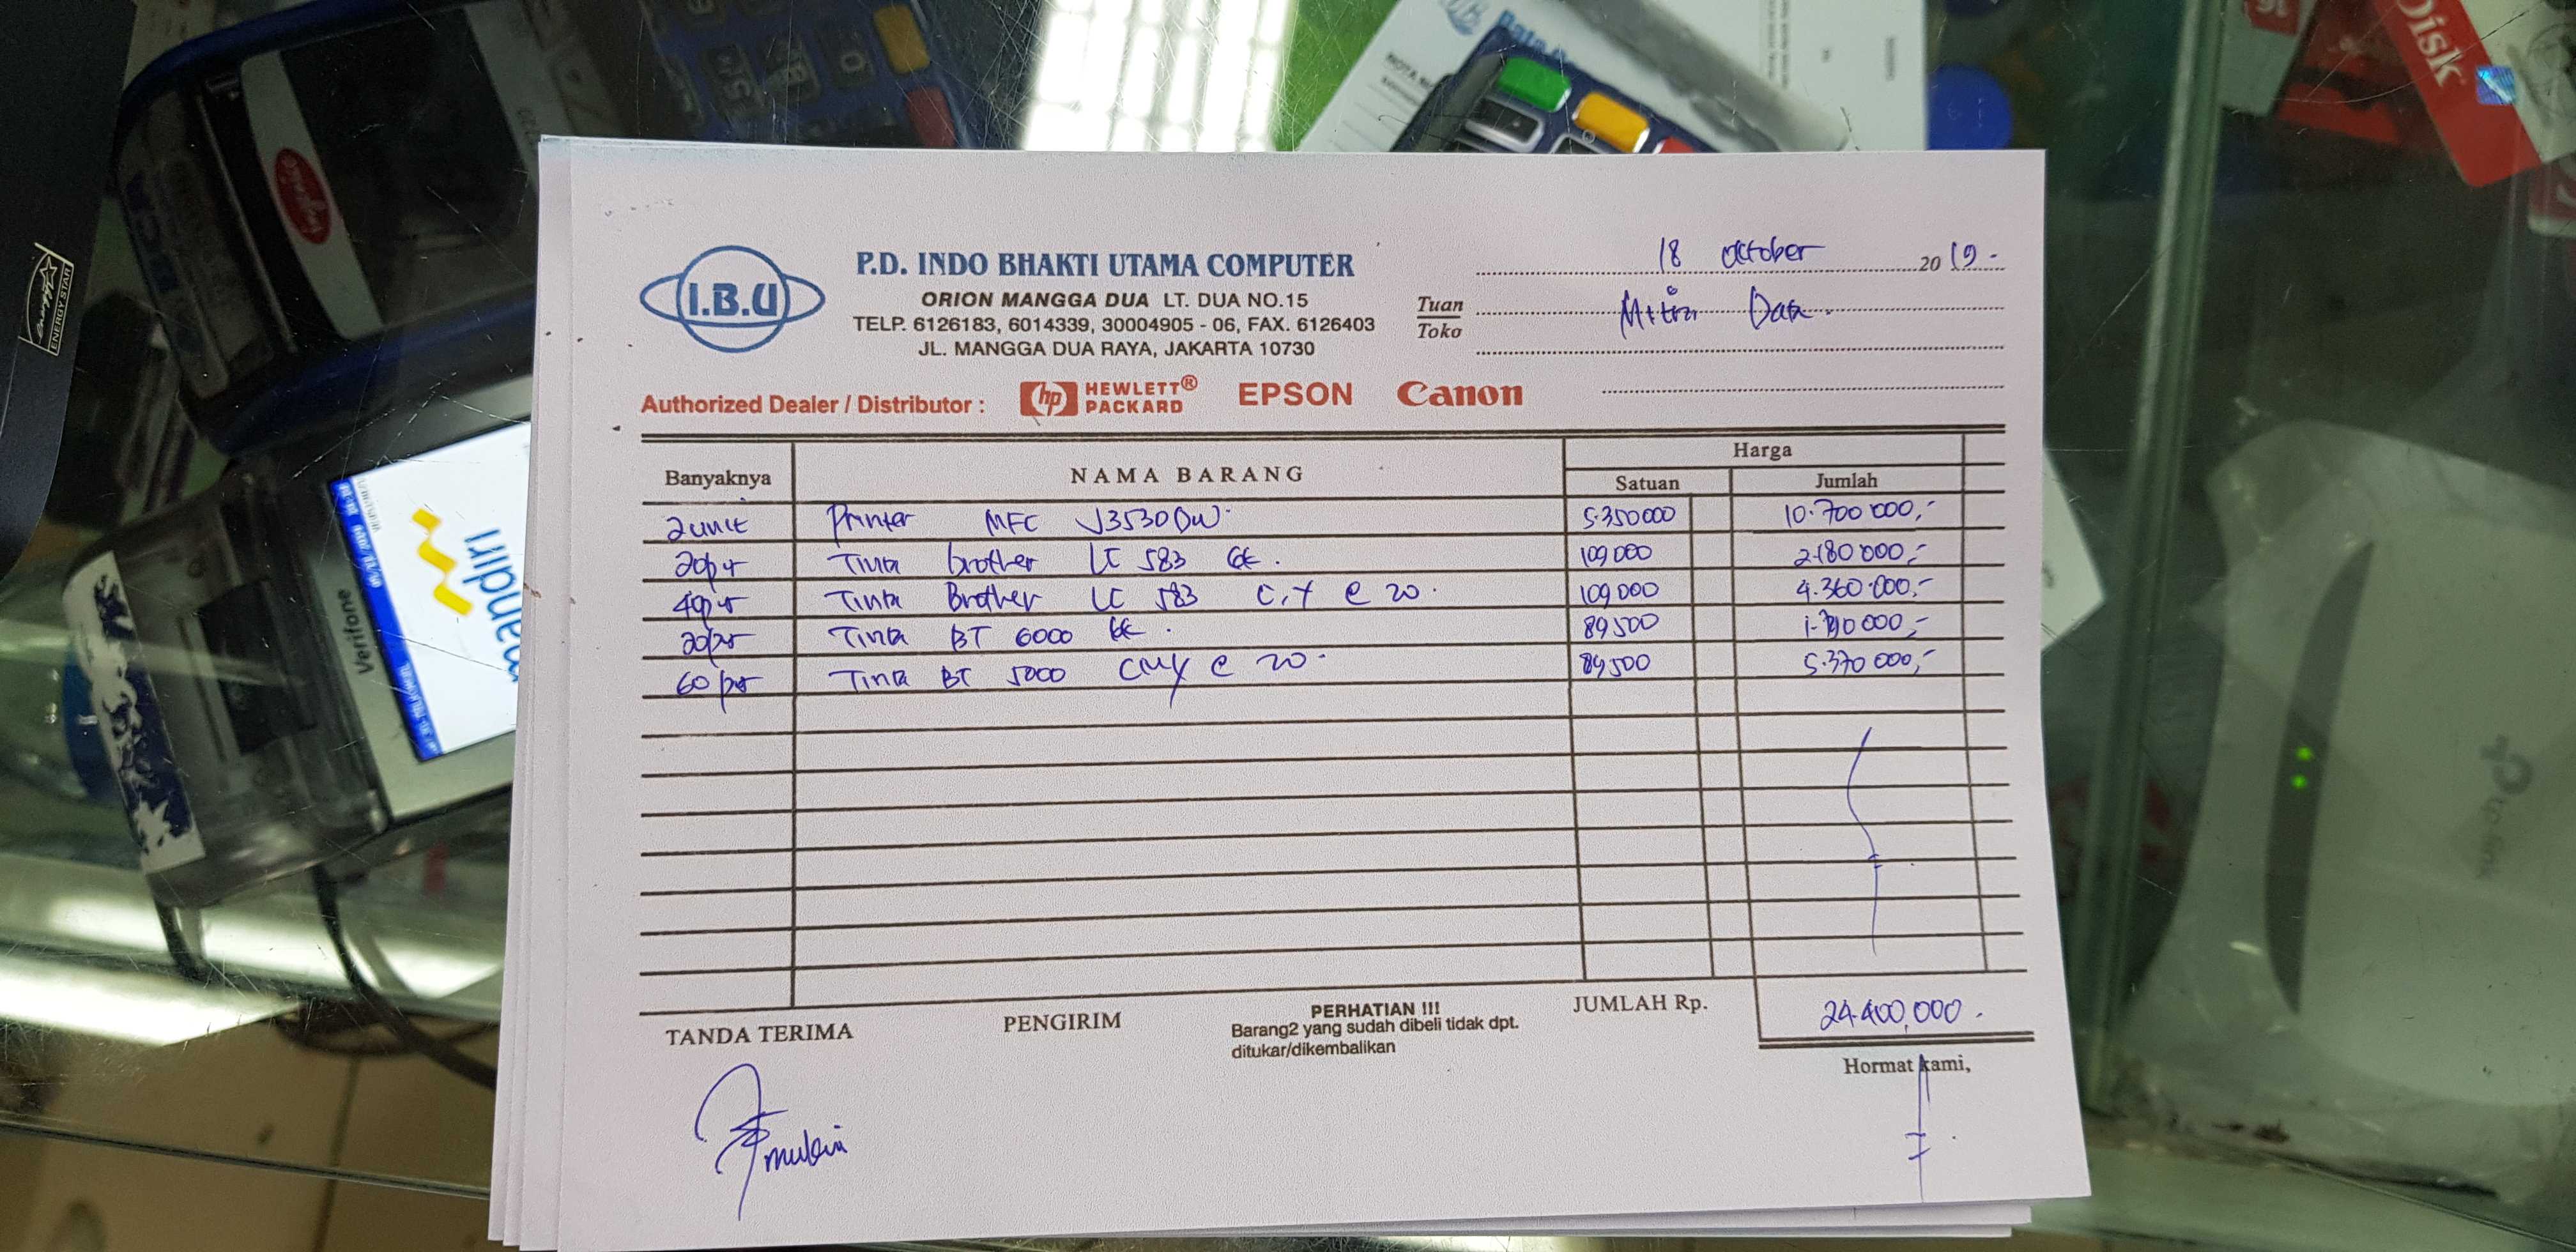 I.B.U
P.D. INDO BHAKTI UTAMA COMPUTER
ORION MANGGA DUA LT. DUA NO.15
TELP. 6126183, 6014339, 30004905 - 06, FAX. 6126403
JL. MANGGA DUA RAYA, JAKARTA 10730
18 october 2019.
Tuan
Toko
Mitra Data.
Authorized Dealer / Distributor : hp HEWLETT® PACKARD EPSON Canon
Banyaknya NAMA BARANG Harga
Satuan Jumlah
2 unit Printer MFC J3530DW. 5.350000 10.700 000,-
20 Tinta brother LC 583 BK. 109 000 2.180 000,-
40 Tinta Brother LC 583 C,Y @ 20. 109 000 4.360.000,-
20 Tinta BT 6000 BK. 89500 1.790 000,-
60 Tinta BT 5000 CMY @ 20. 89500 5.370 000,-
JUMLAH Rp. 24.400,000.
TANDA TERIMA
PENGIRIM
PERHATIAN !!!
Barang2 yang sudah dibeli tidak dpt.
ditukar/dikembalikan
Hormat kami,
mandiri
Verifone
ENERGY STAR
Disk